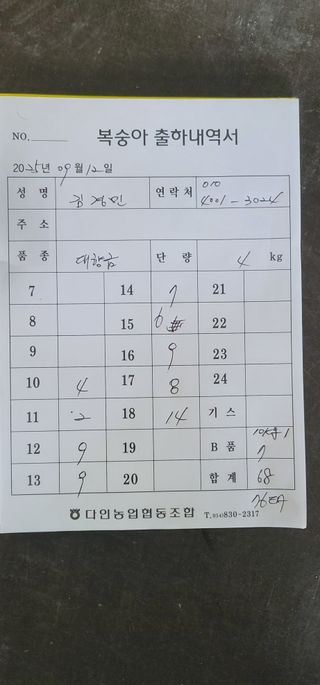 NO.
복숭아 출하내역서
2025년 09월 12일
성 명 김정민 연락처 010 4001-3024
주 소
품 종 대향금 단 량 4 kg
7 14 7 21
8 15 6 22
9 16 9 23
10 4 17 8 24
11 2 18 14 기 스
12 9 19 B 품 10kg 1 7
13 9 20 합 계 68
76EA
다인농업협동조합 T.054)830-2317